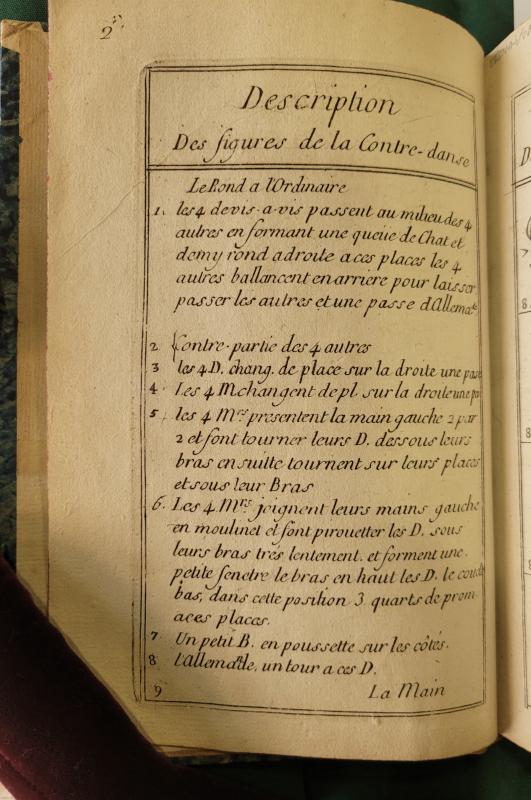 2
Description
Des figures de la Contre-danse
Le Rond a l'Ordinaire
1. les 4 de vis-a-vis passent au milieu des 4
autres en formant une queüe de Chat et
demy rond a droite a ces places les 4
autres ballancent en arriere pour laisser
passer les autres et une passe d'Allemade
2 Contre-partie des 4 autres
3 les 4 D. chang. de place sur la droite une pase
4. Les 4 M. changent de pl. sur la droite une
5. les 4 Mrs presentent la main gauche 2 par
2 et font tourner leurs D. dessous leurs
bras ensuitte tournent sur leurs places
et sous leur Bras
6. Les 4 Mrs joignent leurs mains gauche
en moulinet et font pirouetter les D. sous
leurs bras très lentement. et forment une
petite fenetre le bras en haut les D. le coude
bas, dans cette position 3. quarts de prom
a ces places.
7 Un petit B. en poussette sur les côtés.
8 l'Allemade, un tour a ces D.
9 La Main